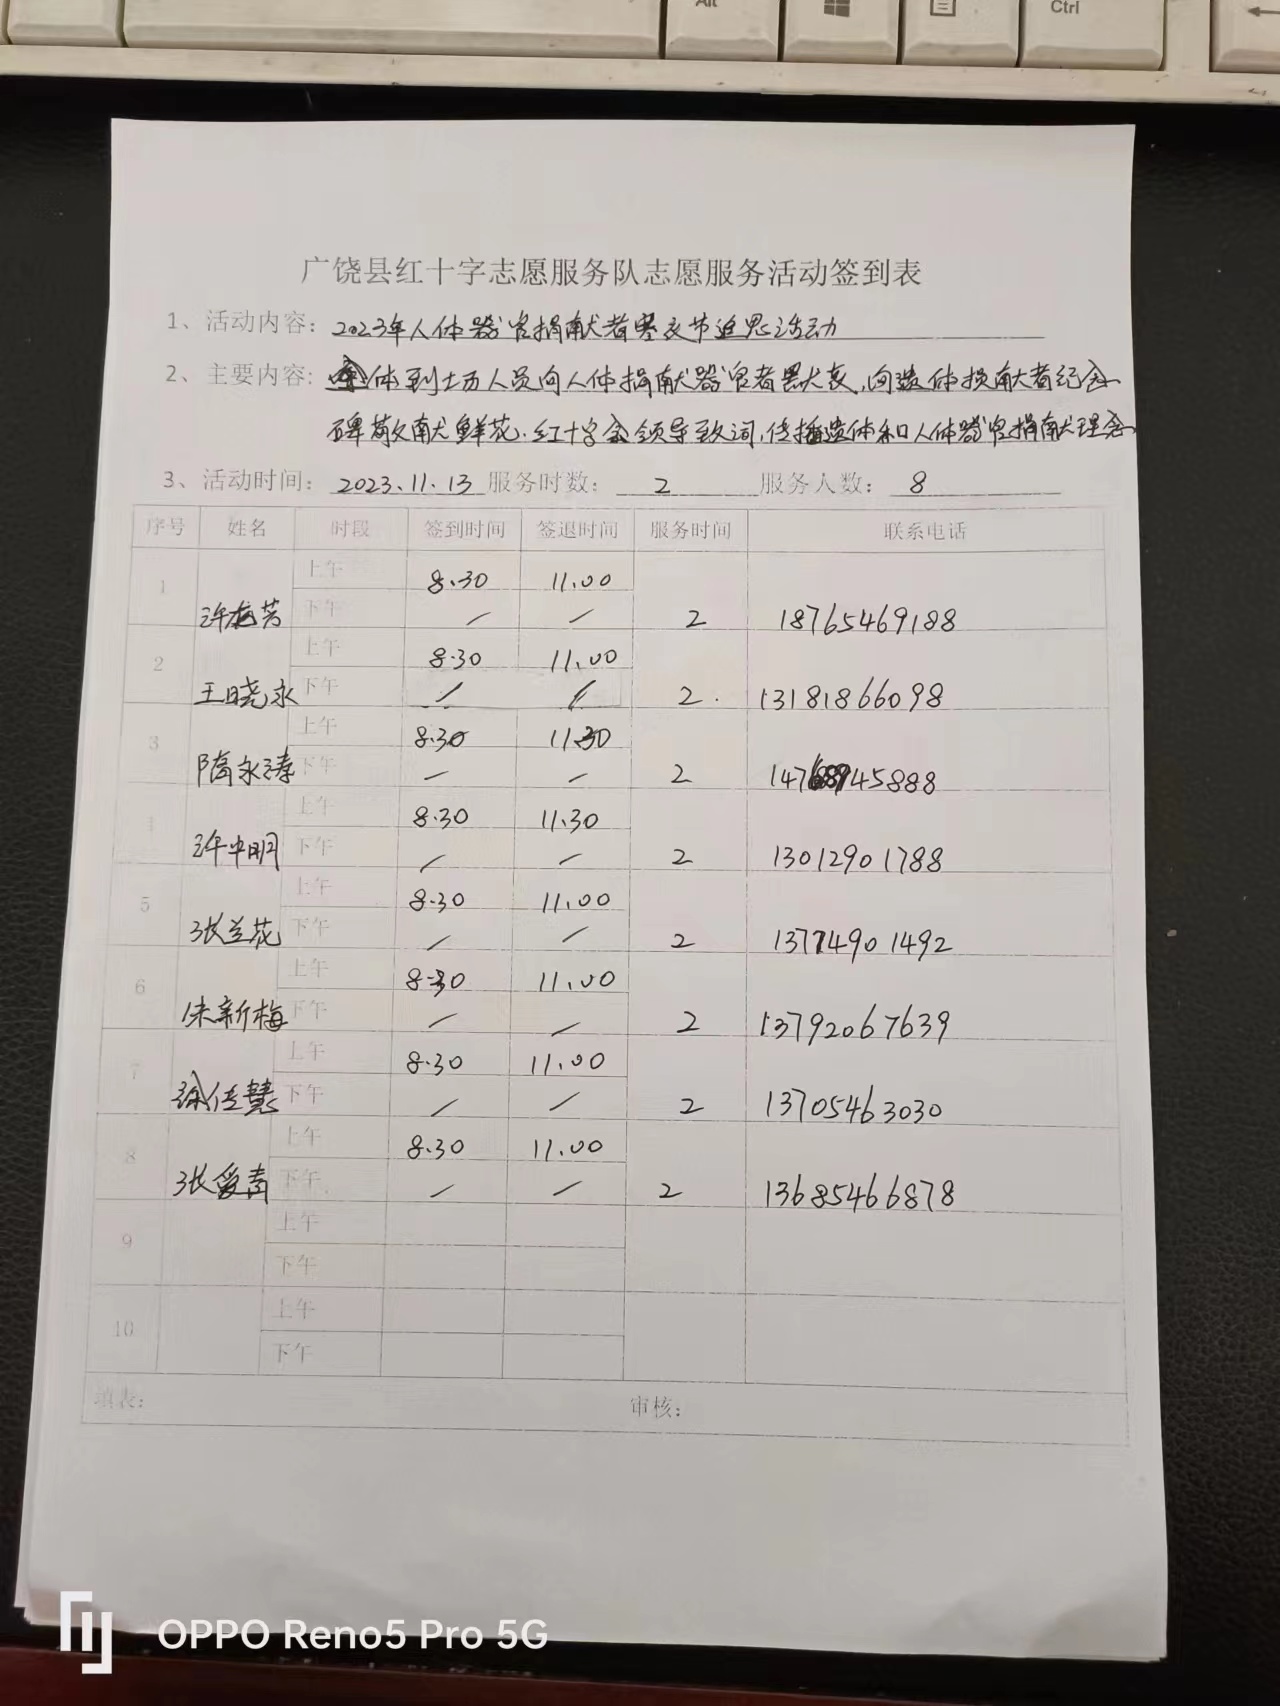 Alt
Ctrl
广饶县红十字志愿服务队志愿服务活动签到表
1、活动内容: 2023年人体器官捐献者寒衣节追思活动
2、主要内容: 全体到场人员向人体捐献器官者默哀,向遗体捐献者纪念
碑敬献鲜花.红十字会领导致词,传播遗体和人体器官捐献理念
3、活动时间: 2023.11.13 服务时数: 2 服务人数: 8
序号 姓名 时段 签到时间 签退时间 服务时间 联系电话
1 许梅芳 上午 8.30 11.00 2 18765469188
下午 / /
2 王晓永 上午 8.30 11.00 2 13181866098
下午 / /
3 隋永涛 上午 8.30 11.30 2
下午 / /
许中明 上午 8.30 11.30 2 13012901788
下午 / /
5 张兰花 上午 8.30 11.00 2 13774901492
下午 / /
6 新梅 上午 8.30 11.00 2 13792067639
下午 / /
7 徐佳慧 上午 8.30 11.00 2 13705463030
下午 / /
8 张爱青 上午 8.30 11.00 2 13685466878
下午 / /
9 上午
下午
10 上午
下午
填表: 审核:
OPPO Reno5 Pro 5G